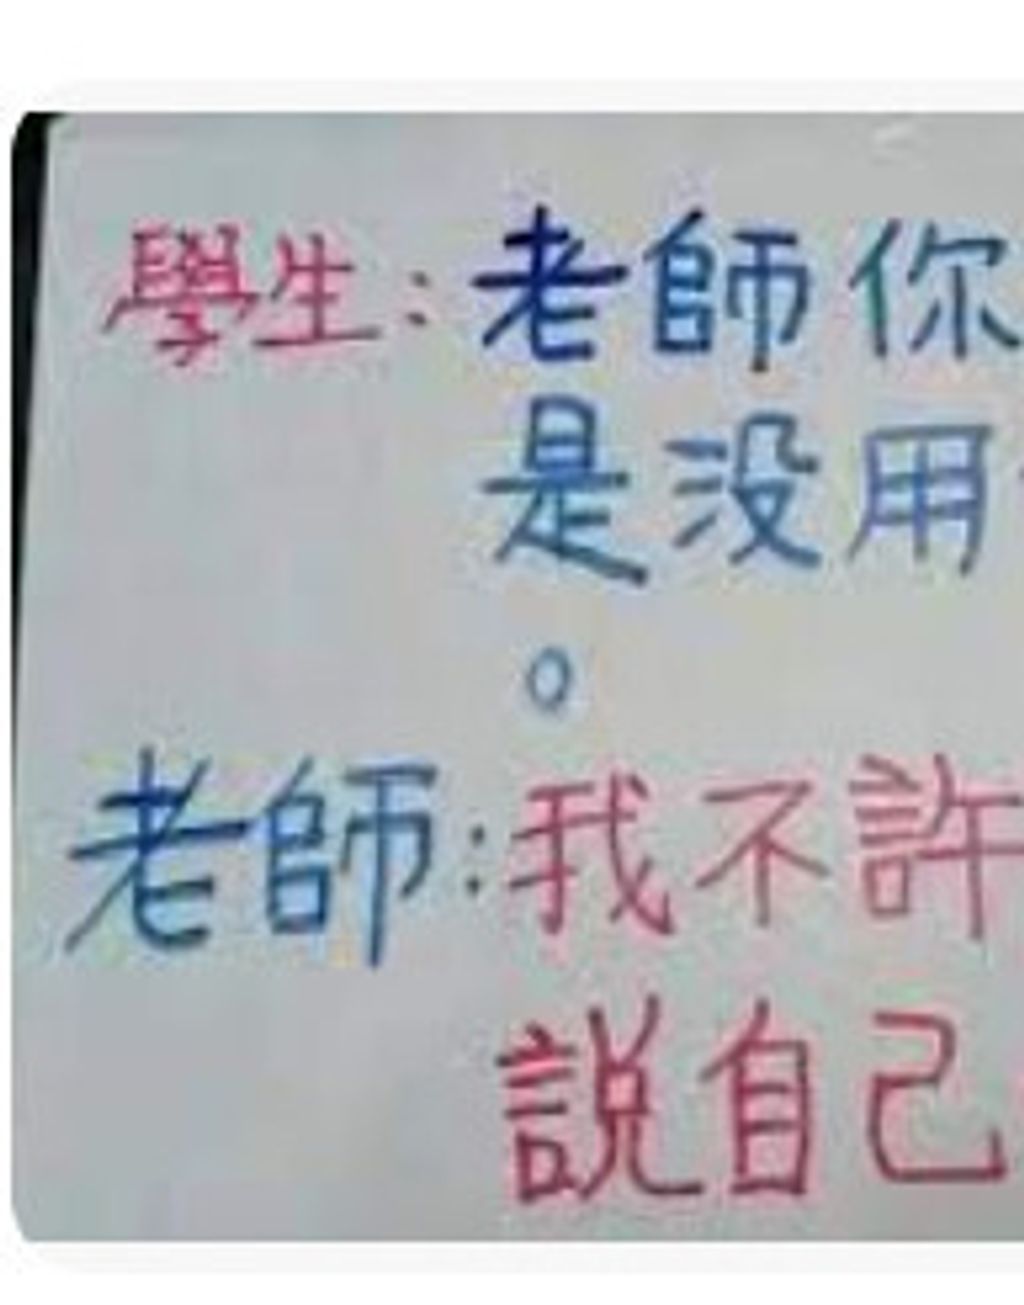 學生：老師你
是没用
。
老師：我不許
説自己